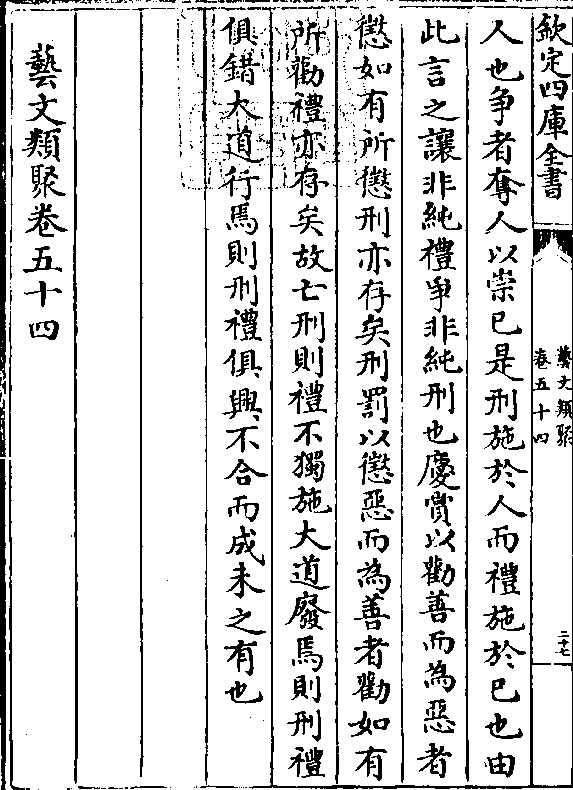 欽定四庫全書
藝文類聚
卷五十四
二十七
人也爭者奪人以崇已是刑施於人而禮施於已也由
此言之讓非純禮爭非純刑也慶賞以勸善而為惡者
懲如有所懲刑亦存矣刑罰以懲惡而為善者勸如有
所勸禮亦存矣故亡刑則禮不獨施大道廢焉則刑禮
俱錯大道行焉則刑禮俱興不合而成未之有也
藝文類聚卷五十四